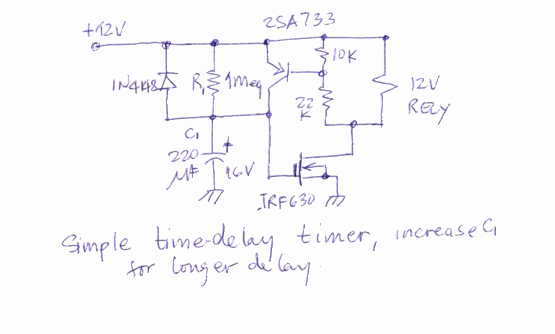 +12V
2SA733
10K
1N4148
R1
1Meg
22
K
12V
RELY
C1
220
µF
+
16V
IRF630
Simple time-delay timer, increase C1
for longer delay.